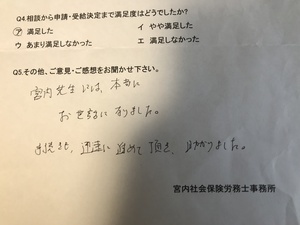 Q4.相談から申請・受給決定まで満足度はどうでしたか?
ア 満足した イ やや満足した
ウ あまり満足しなかった エ 満足しなかった
Q5.その他、ご意見・ご感想をお聞かせ下さい。
宮内先生には、本当に
お世話になりました。
手続きも、迅速に進めて頂き、助かりました。
宮内社会保険労務士事務所